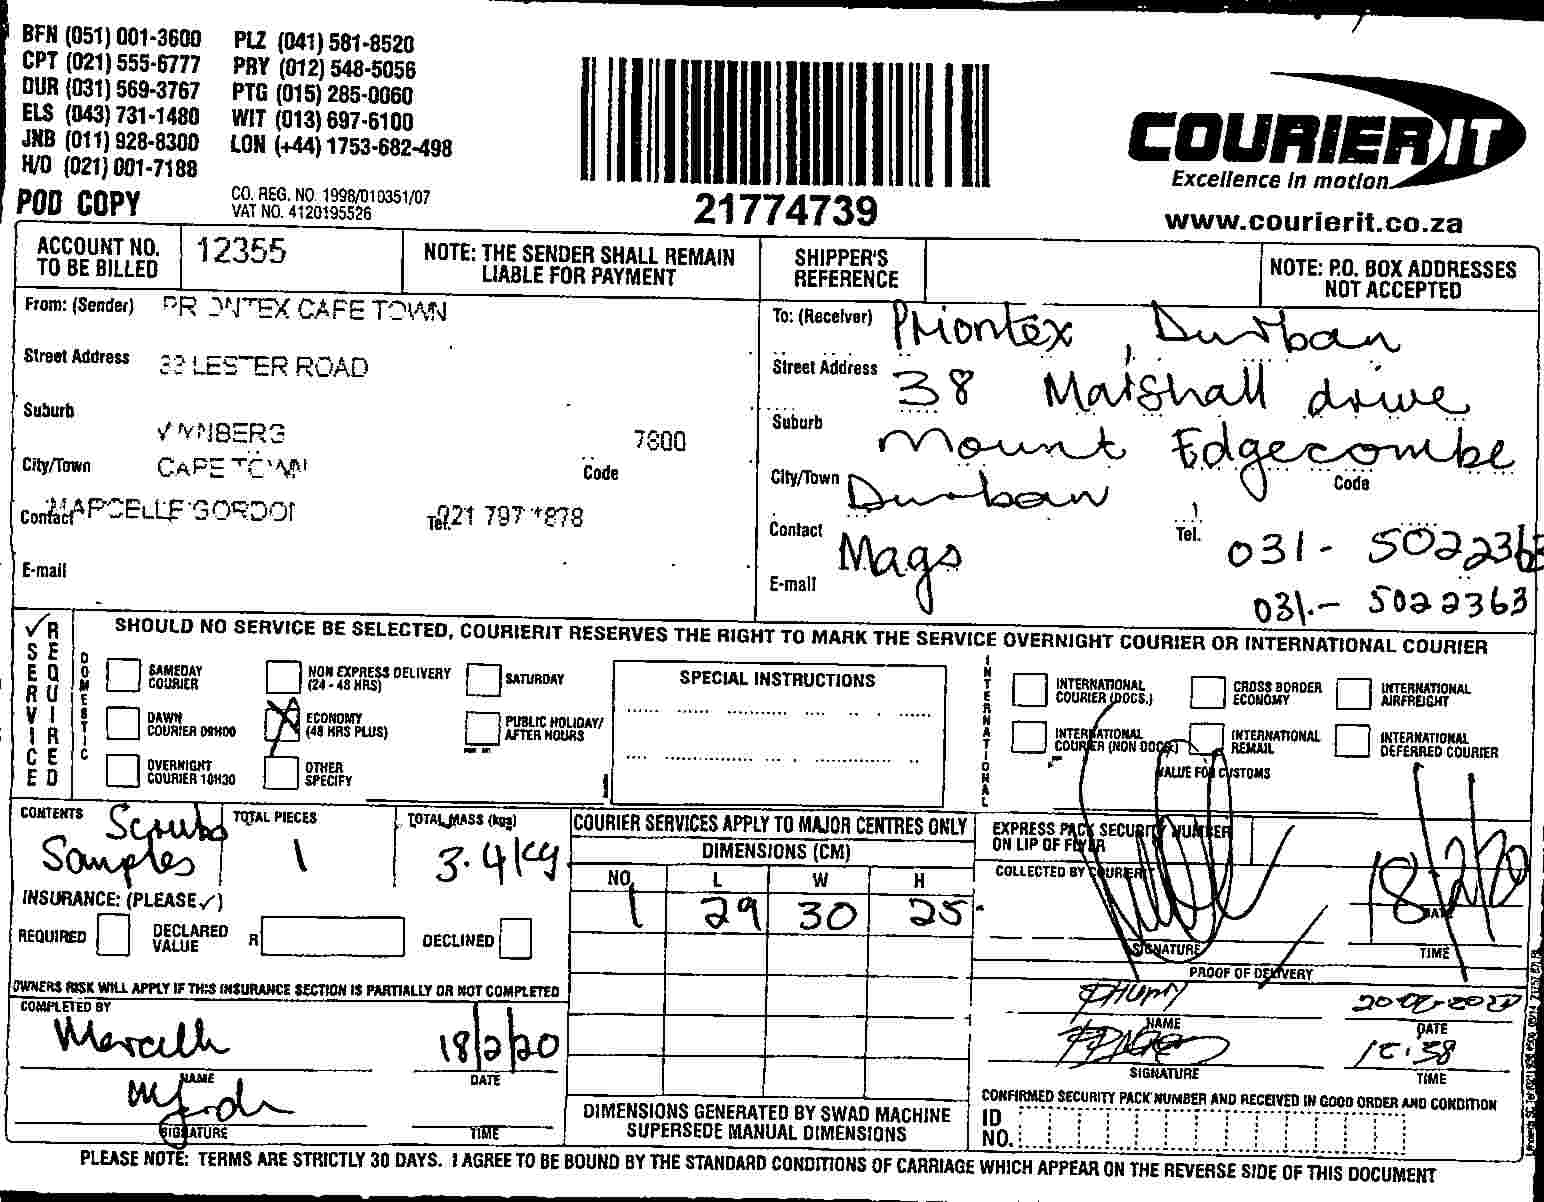 BFN (051) 001-3600 PLZ (041) 581-8520
CPT (021) 555-6777 PRY (012) 548-5056
DUR (031) 569-3767 PTG (015) 285-0060
ELS (043) 731-1480 WIT (013) 697-6100
JNB (011) 928-8300 LON (+44) 1753-682-498
H/O (021) 001-7188
POD COPY
CO. REG. NO. 1998/010351/07
VAT NO. 4120195526
21774739
COURIER IT
Excellence in motion
www.courierit.co.za
ACCOUNT NO. TO BE BILLED 12355
NOTE: THE SENDER SHALL REMAIN LIABLE FOR PAYMENT
SHIPPER'S REFERENCE
NOTE: P.O. BOX ADDRESSES NOT ACCEPTED
From: (Sender) PRIONTEX CAPE TOWN
Street Address LESTER ROAD
Suburb WYNBERG 7800
City/Town CAPE TOWN Code
Contact MARCELLE GORDON Tel. 021 797
E-mail
To: (Receiver) Priontex, Durban
Street Address 38 Marshall drive
Suburb Mount Edgecombe
City/Town Durban Code
Contact Mags Tel. 031 - 5022363
E-mail 031 - 5022363
✓ SERVICE REQUIRED
SHOULD NO SERVICE BE SELECTED, COURIERIT RESERVES THE RIGHT TO MARK THE SERVICE OVERNIGHT COURIER OR INTERNATIONAL COURIER
DOMESTIC
SAMEDAY COURIER
NON EXPRESS DELIVERY (24 - 48 HRS)
SATURDAY
DAWN COURIER 09H00
X ECONOMY (48 HRS PLUS)
PUBLIC HOLIDAY/ AFTER HOURS
OVERNIGHT COURIER 10H30
OTHER SPECIFY
SPECIAL INSTRUCTIONS
INTERNATIONAL
INTERNATIONAL COURIER (DOCS.)
CROSS BORDER ECONOMY
INTERNATIONAL AIRFREIGHT
INTERNATIONAL COURIER (NON DOCS.)
INTERNATIONAL REMAIL
INTERNATIONAL DEFERRED COURIER
VALUE FOR CUSTOMS
CONTENTS Scrubs Samples
TOTAL PIECES 1
TOTAL MASS (kgs) 3.4kg
INSURANCE: (PLEASE ✓)
REQUIRED DECLARED VALUE R DECLINED
OWNERS RISK WILL APPLY IF THIS INSURANCE SECTION IS PARTIALLY OR NOT COMPLETED
COMPLETED BY
Marcelle 18/2/20
NAME DATE
SIGNATURE TIME
COURIER SERVICES APPLY TO MAJOR CENTRES ONLY
DIMENSIONS (CM)
NO L W H
1 29 30 25
DIMENSIONS GENERATED BY SWAD MACHINE SUPERSEDE MANUAL DIMENSIONS
EXPRESS PACK SECURITY NUMBER ON LIP OF FLYER
COLLECTED BY COURIER
18/2/20
DATE
SIGNATURE TIME
PROOF OF DELIVERY
NAME DATE
SIGNATURE TIME
CONFIRMED SECURITY PACK NUMBER AND RECEIVED IN GOOD ORDER AND CONDITION
ID NO.
PLEASE NOTE: TERMS ARE STRICTLY 30 DAYS. I AGREE TO BE BOUND BY THE STANDARD CONDITIONS OF CARRIAGE WHICH APPEAR ON THE REVERSE SIDE OF THIS DOCUMENT